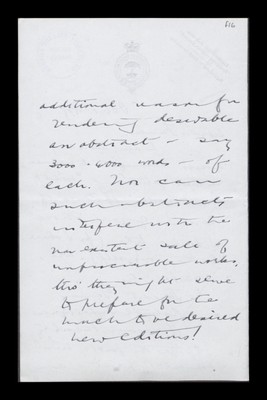 additional reason for
rendering desirable
an abstract – say
3000 - 4000 words – of
each. Nor can
such abstracts
interfere with the
non existent sale of
unprocurable works,
tho' they might serve
to prepare for the
much to be desired
new editions!